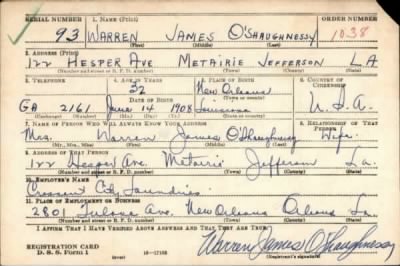 SERIAL NUMBER 1. NAME (Print) ORDER NUMBER
93 WARREN JAMES O'SHAUGHNESSY 1038
(First) (Middle) (Last)
2. ADDRESS (Print)
122 HESPER AVE METAIRIE JEFFERSON LA
(Number and street or R. F. D. number) (Town) (County) (State)
3. TELEPHONE 4. AGE IN YEARS 5. PLACE OF BIRTH 6. COUNTRY OF CITIZENSHIP
32 New Orleans
DATE OF BIRTH (Town or county)
GA 2161 June 14 1908 Louisiana U.S.A.
(Exchange) (Number) (Mo.) (Day) (Yr.) (State or country)
7. NAME OF PERSON WHO WILL ALWAYS KNOW YOUR ADDRESS 8. RELATIONSHIP OF THAT PERSON
Mrs. Warren James O'Shaughnessy Wife
(Mr., Mrs., Miss) (First) (Middle) (Last)
9. ADDRESS OF THAT PERSON
122 Hesper Ave. Metairie Jefferson La.
(Number and street or R. F. D. number) (Town) (County) (State)
10. EMPLOYER'S NAME
Crescent City Laundries
11. PLACE OF EMPLOYMENT OR BUSINESS
2801 Ave. New Orleans Orleans La.
(Number and street or R. F. D. number) (Town) (County) (State)
I AFFIRM THAT I HAVE VERIFIED ABOVE ANSWERS AND THAT THEY ARE TRUE.
REGISTRATION CARD
D. S. S. Form 1 16-17105 Warren James O'Shaughnessy
(Registrant's signature)